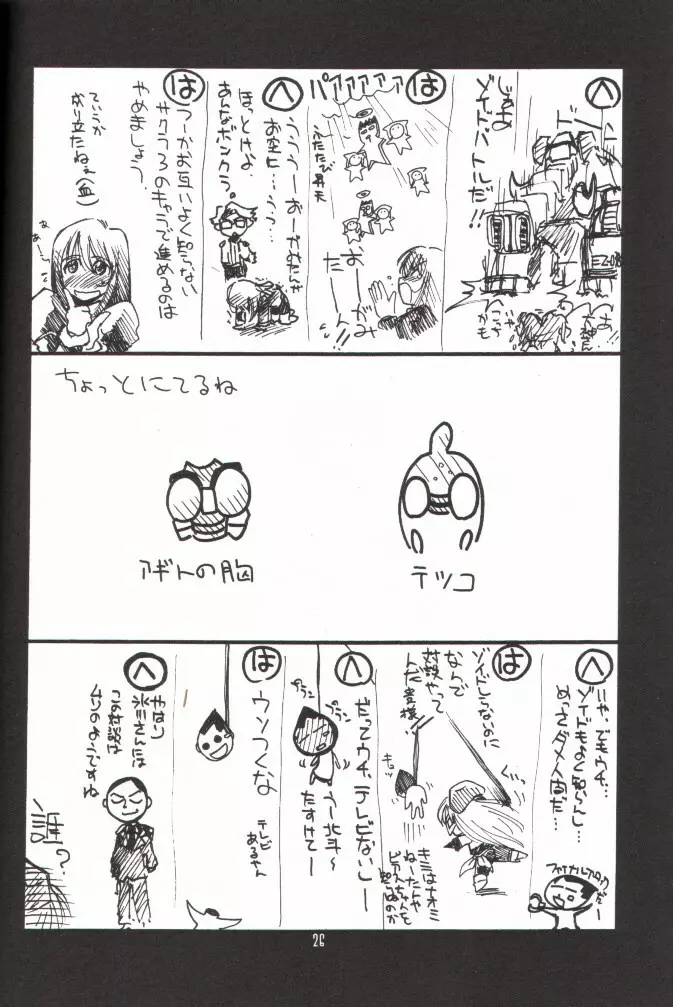 へ
じゃあ
ゾイドバトルだ!!
は
パアァァァァァ
ふたたび昇天
おーがみ
たーーん!
へ
お空に…う…
ほっとけよ
あんなボンクラ。
は
つーかお互いよく知らない
サクラ3のキャラで進めるのは
やめましょう。
ていうか
ちょっとにてるね
アギトの胸
テツコ
へ
いや、でもウチ…
ゾイドもよく知らんし…
めっさダメ人間だ…
は
ゾイド知らないのに
なんで
対談やって
んだ貴様!!
キミはナオミ
へ
だってウチ、テレビないしー
うー北斗〜
たすけてー
プラン
プラン
は
ウソつくな
テレビ
あるやん
へ
やはり
氷川さんには
この対談は
ムリのようですね
誰?
26